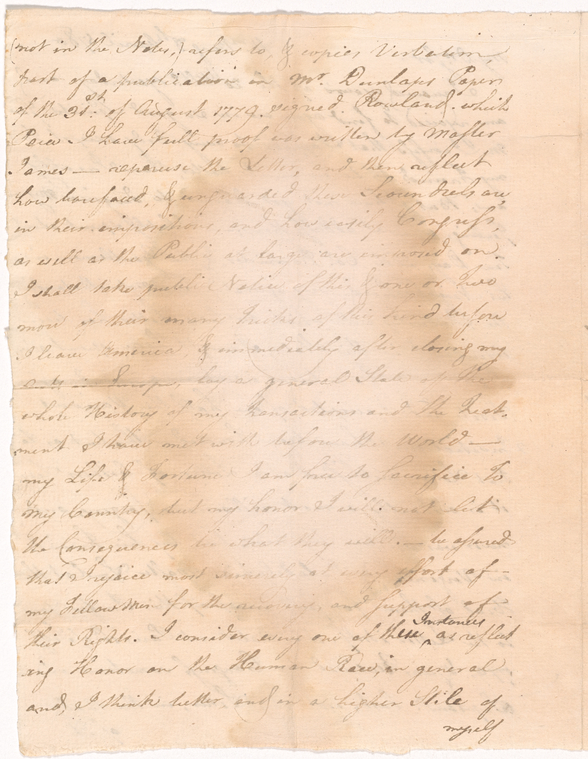 (not in the Notes,) refers to, & copies Verbatim,
part of a publication in Mr. Dunlaps Paper
of the 31st. of August 1779. signed Rowland. which
Peice I have full proof was written by Master
James — reperuse the Letter, and then reflect
how barefaced, & unguarded these Scoundrels are,
in their impositions, and how easily Congress,
as well as the Public at large are imposed on.
I shall take public Notice of this & one or two
more of their many tricks of this kind before
I leave America, & immediately after closing my
Accts in Europe, lay a general State of the
whole History of my transactions and the treat-
ment I have met with before the World —
my Life & Fortune I am free to sacrifice to
my Country, but my honor I will not let
the Consequences be what they will. — be assured
that I rejoice most sincerely at every effort of
my Fellow Men for the recovery, and support of
their Rights. I consider every one of these Instances, as reflect
ing Honor on the Human Race, in general
and, I think better, and in a higher Stile of
myself